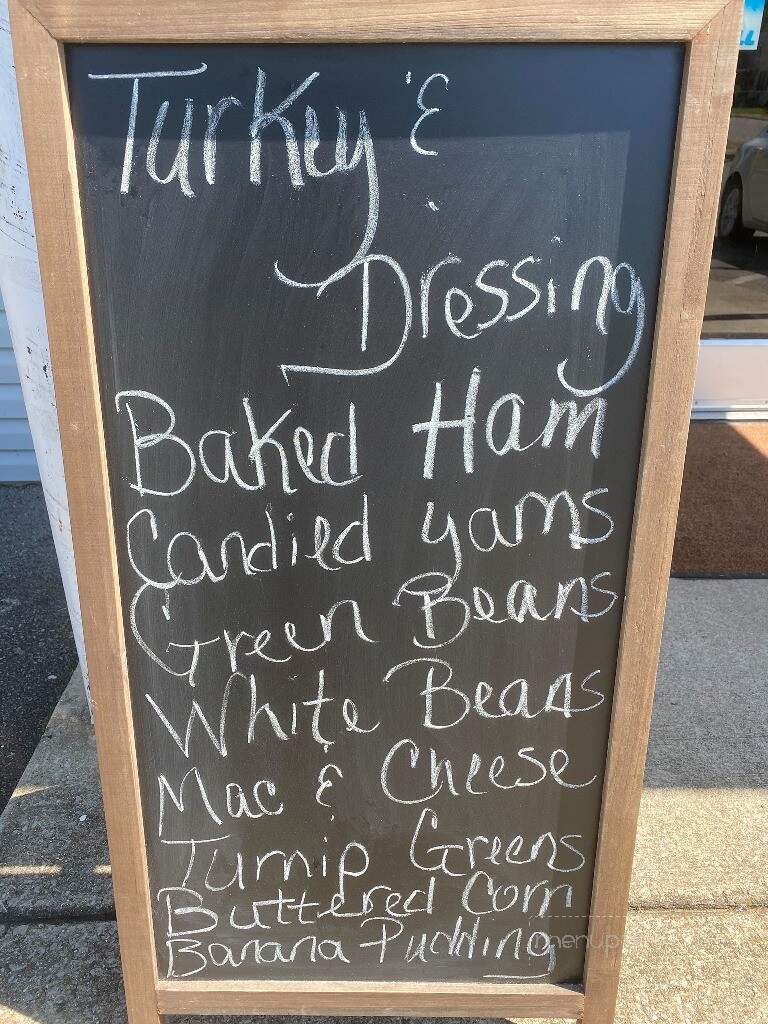 Turkey &
Dressing
Baked Ham
Candied yams
Green Beans
White Beans
Mac & Cheese
Turnip Greens
Buttered Corn
Banana Pudding